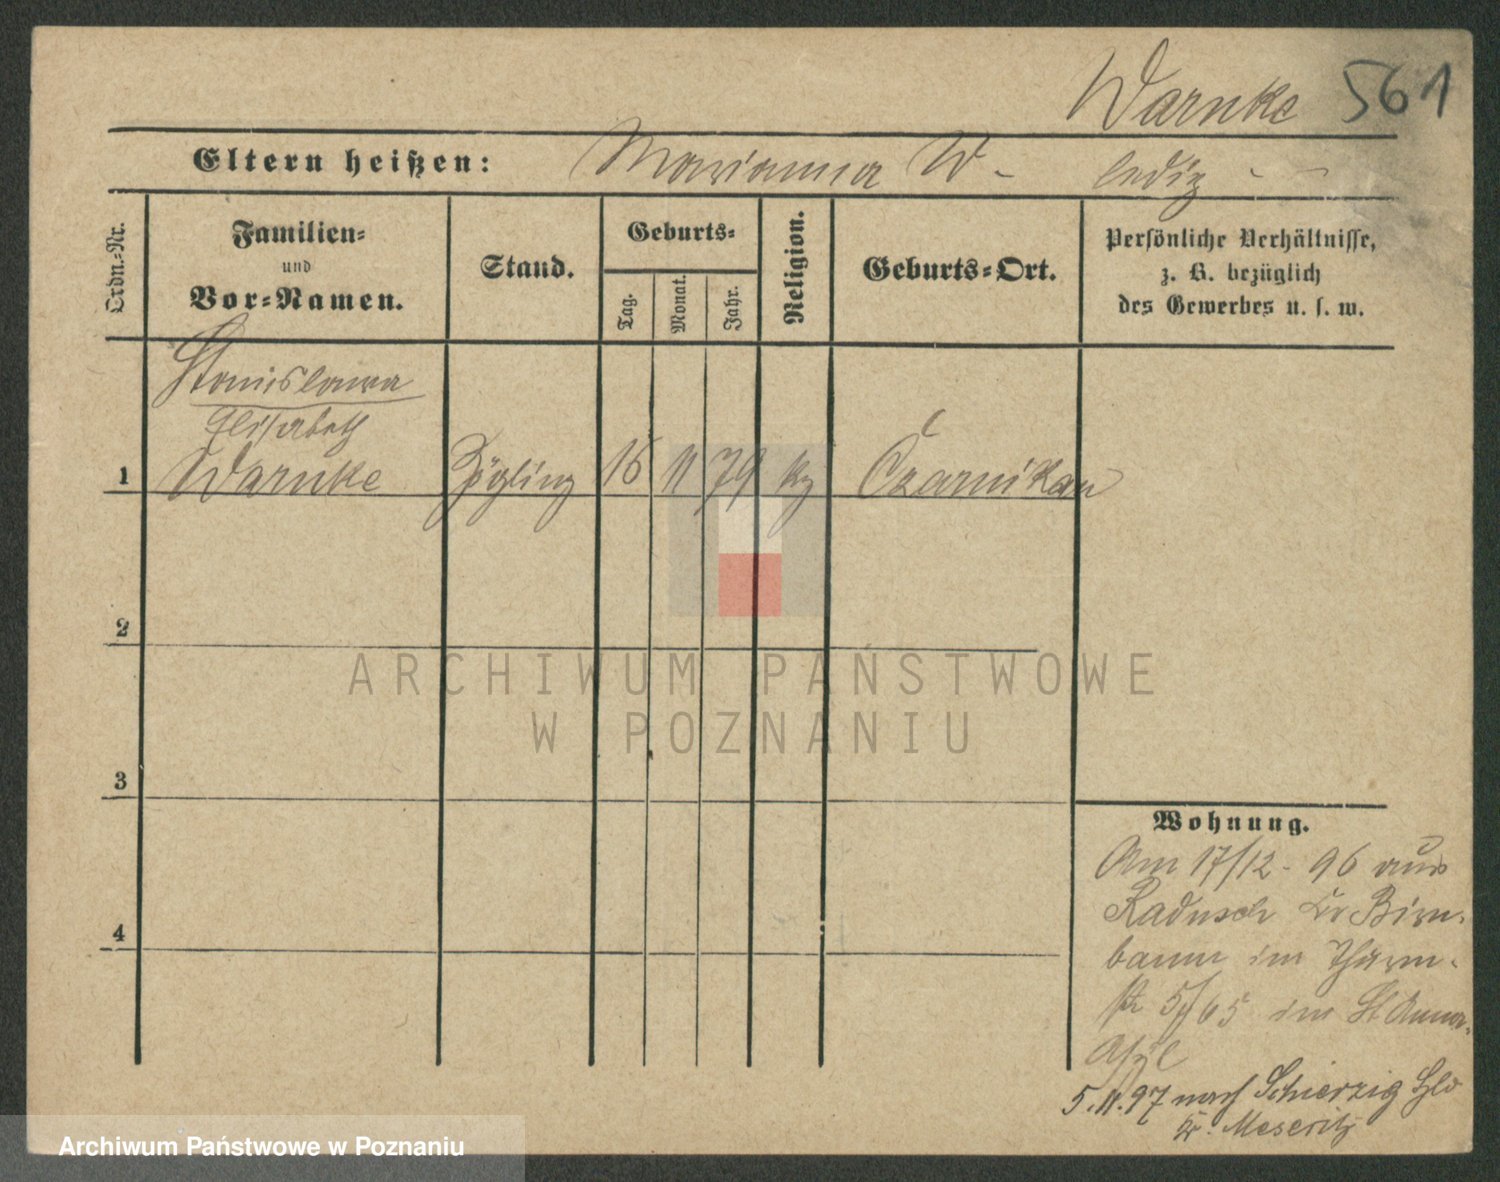 Warnke 561
Eltern heißen: Marianna W - ledig - -
Ordn.-Nr.
Familien-
und
Vor-Namen.
Stand.
Geburts-
Tag.
Monat.
Jahr.
Religion.
Geburts-Ort.
Persönliche Verhältnisse,
z. B. bezüglich
des Gewerbes u. s. w.
Stanislawa
Elisabeth
1 Warnke Zögling 16 11 79 Czarnikau
2
3
4
ARCHIWUM PAŃSTWOWE
W POZNANIU
Wohnung.
Am 17/12 - 96 aus
Radusch Kr Birn-
baum im
5/65 im St Anna-
Asyl
5.11.97 nach Schierzig
Kr. Meseritz
Archiwum Państwowe w Poznaniu